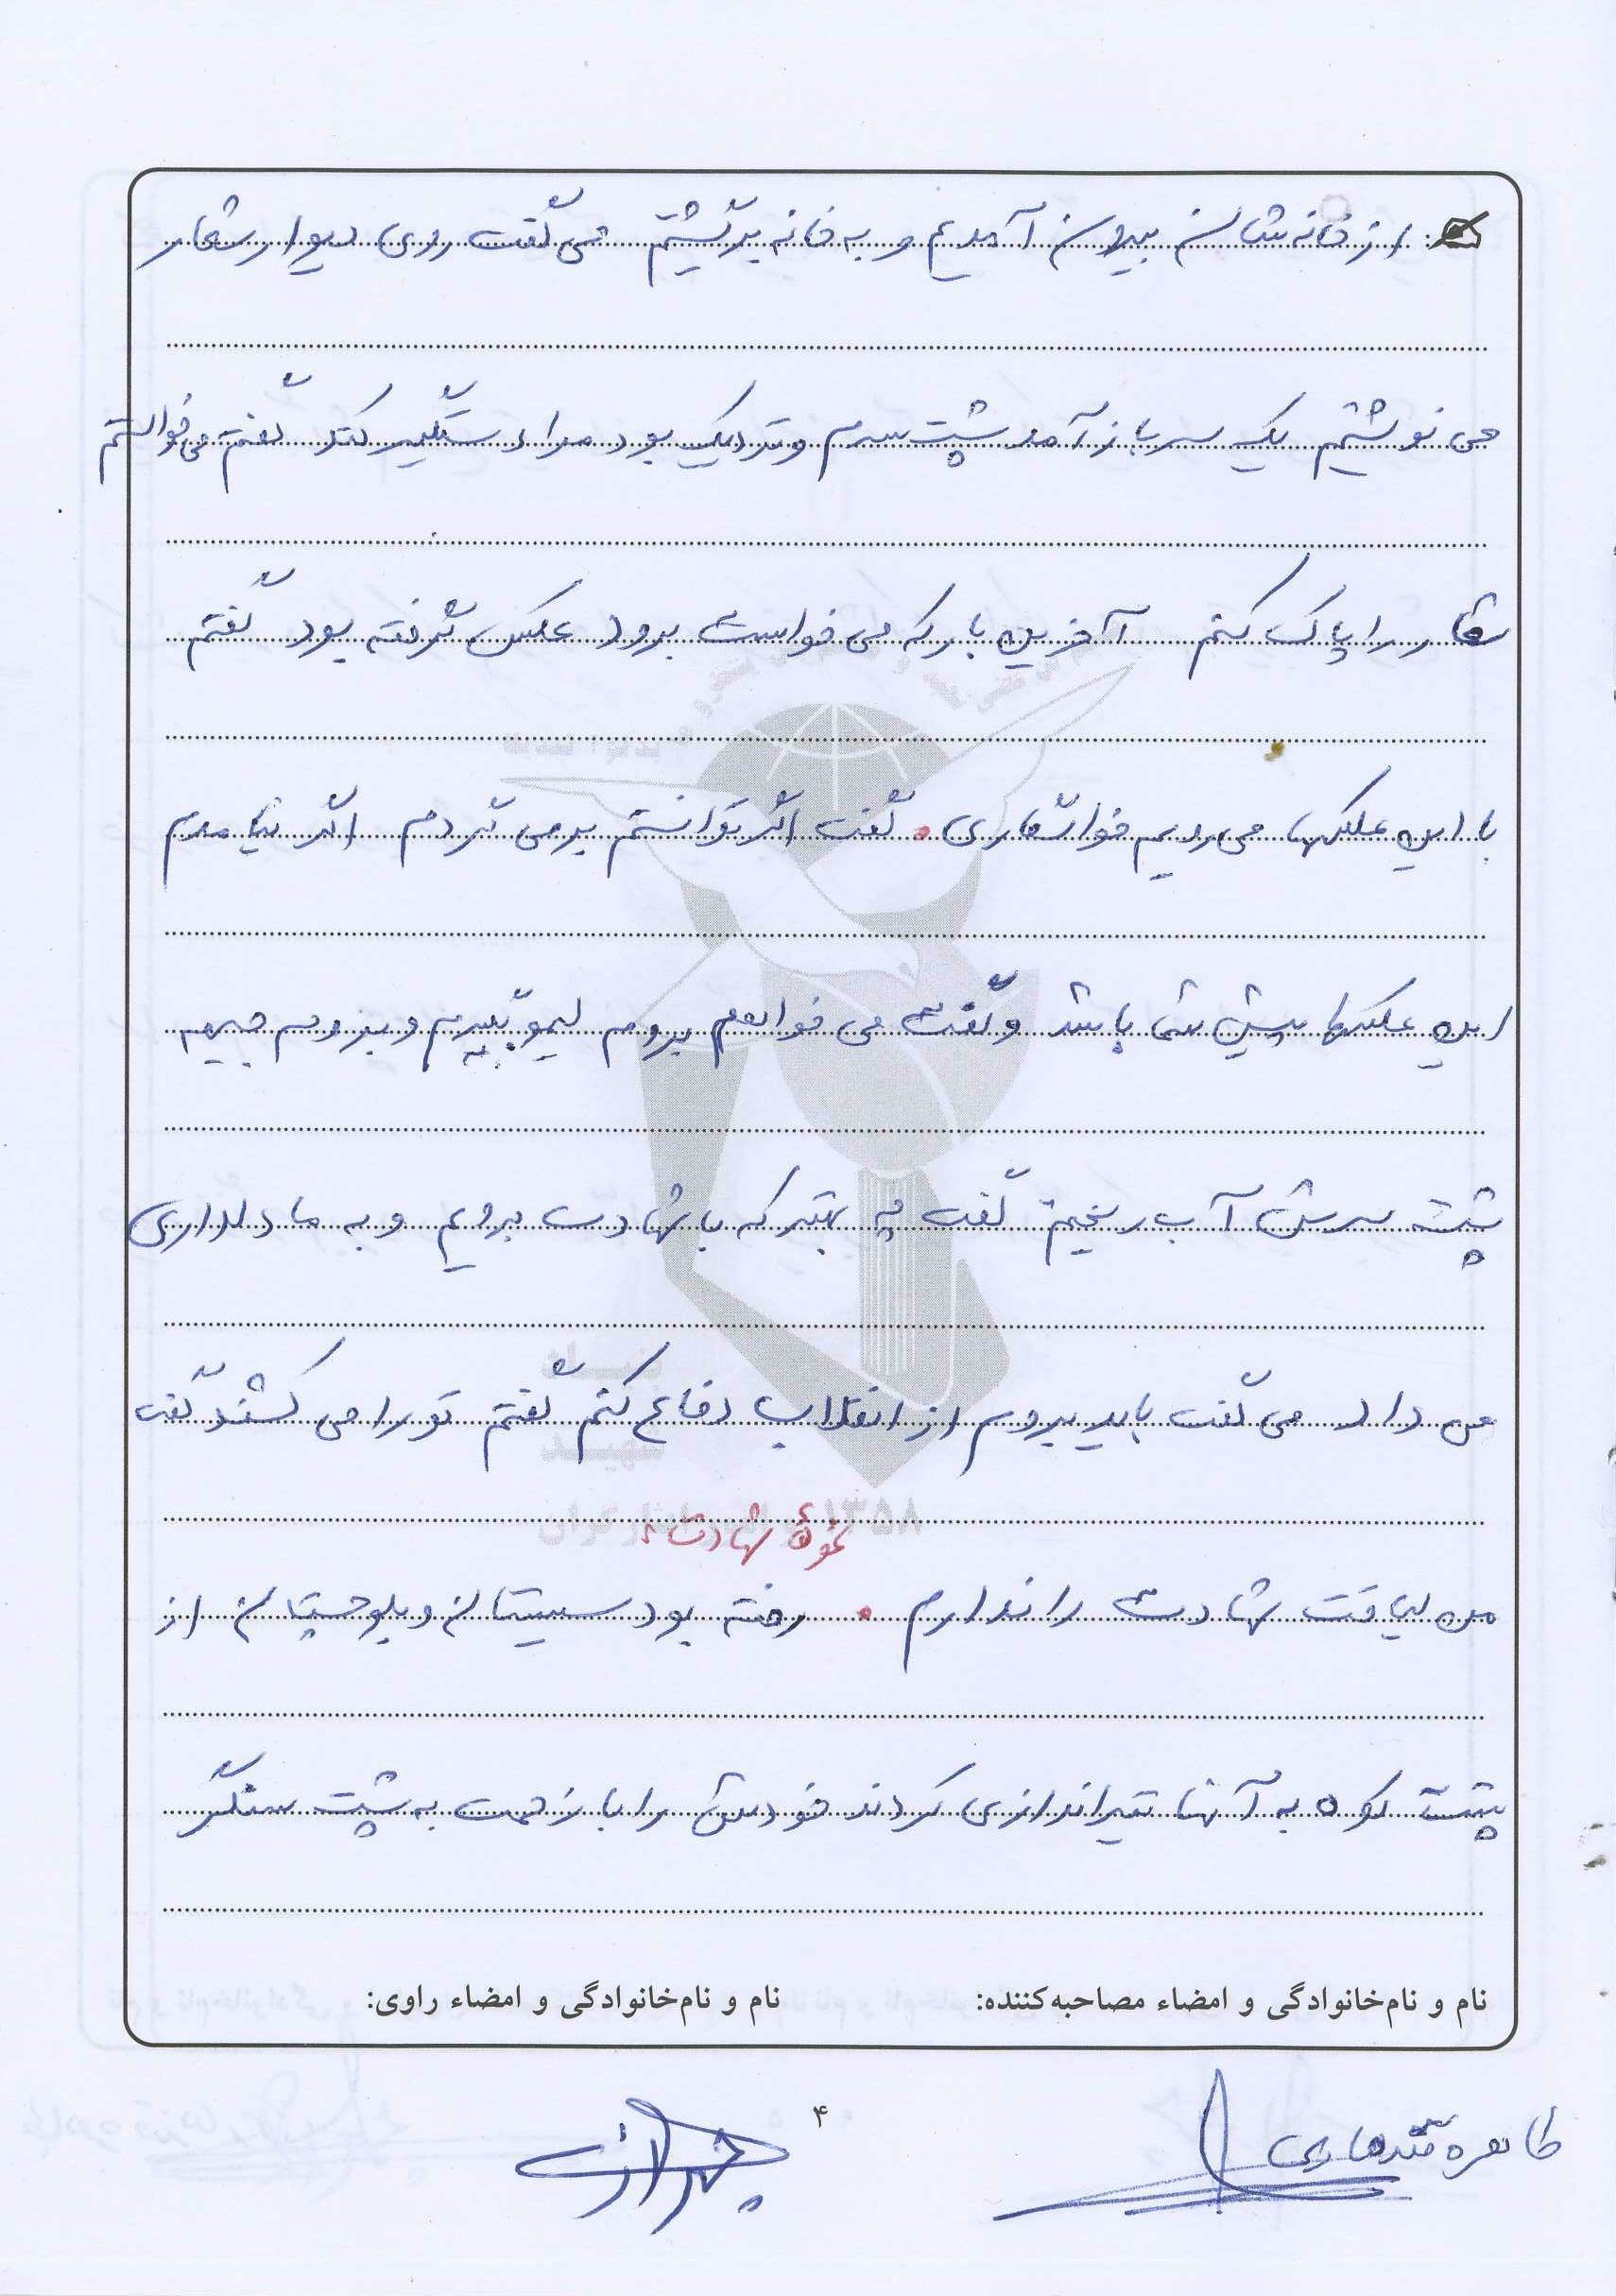 از خانه شان بیرون آمدیم و به خانه برگشتم می گفت روی دیوار شعار
می نوشتم یک سرباز آمد پشت سرم و نزدیک بود مرا دستگیر کند گفتم می خواستم
شعار را پاک کنم آخرین بار که می خواست برود عکس گرفته بود گفتم
با این عکسها می رویم خواستگاری . گفت اگر توانستم برمی گردم اگر نیامدم
این عکسها پیش شما باشد و گفت می خواهم بروم لیمو بگیرم و بروم جبهه
پشت سرش آب ریختم گفت چه بهتر که با شهادت برویم و به ما دلداری
می داد می گفت باید بروم از انقلاب دفاع کنم گفتم تو را می کشند گفت
نحوهٔ شهادت:
من لیاقت شهادت را ندارم . رفته بود سیستان و بلوچستان از
پشت کوه به آنها تیراندازی کردند خودش را با زحمت به پشت سنگر
نام و نام‌خانوادگی و امضاء مصاحبه‌کننده: نام و نام‌خانوادگی و امضاء راوی:
۴
طاهره قندهاری
۱۳۵۸